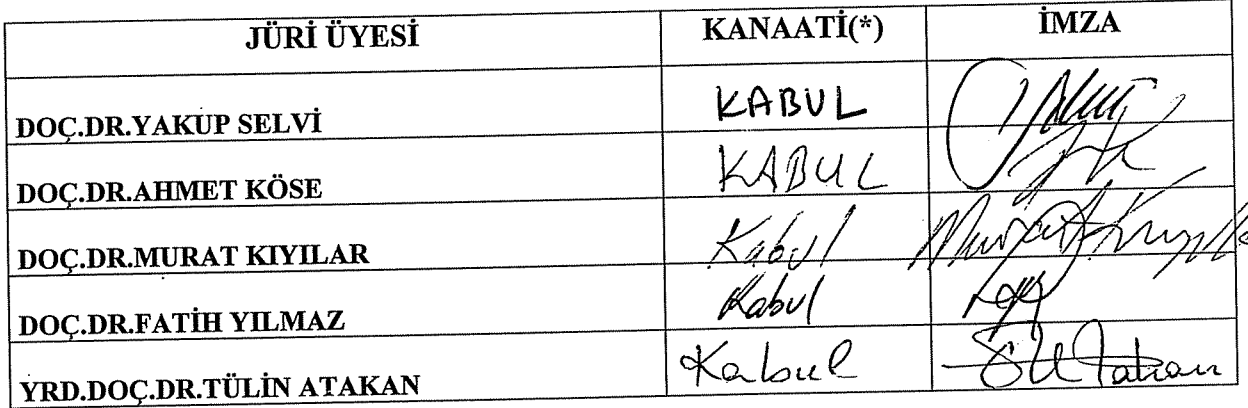 JÜRİ ÜYESİ KANAATİ(*) İMZA
DOÇ.DR.YAKUP SELVİ KABUL
DOÇ.DR.AHMET KÖSE KABUL
DOÇ.DR.MURAT KIYILAR Kabul
DOÇ.DR.FATİH YILMAZ Kabul
YRD.DOÇ.DR.TÜLİN ATAKAN Kabul